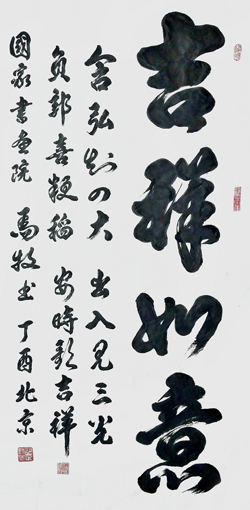 吉祥如意
含弘知四大 出入見三光
負郭喜粳稻 安時歌吉祥
國家書畫院 馬牧書 丁酉北京